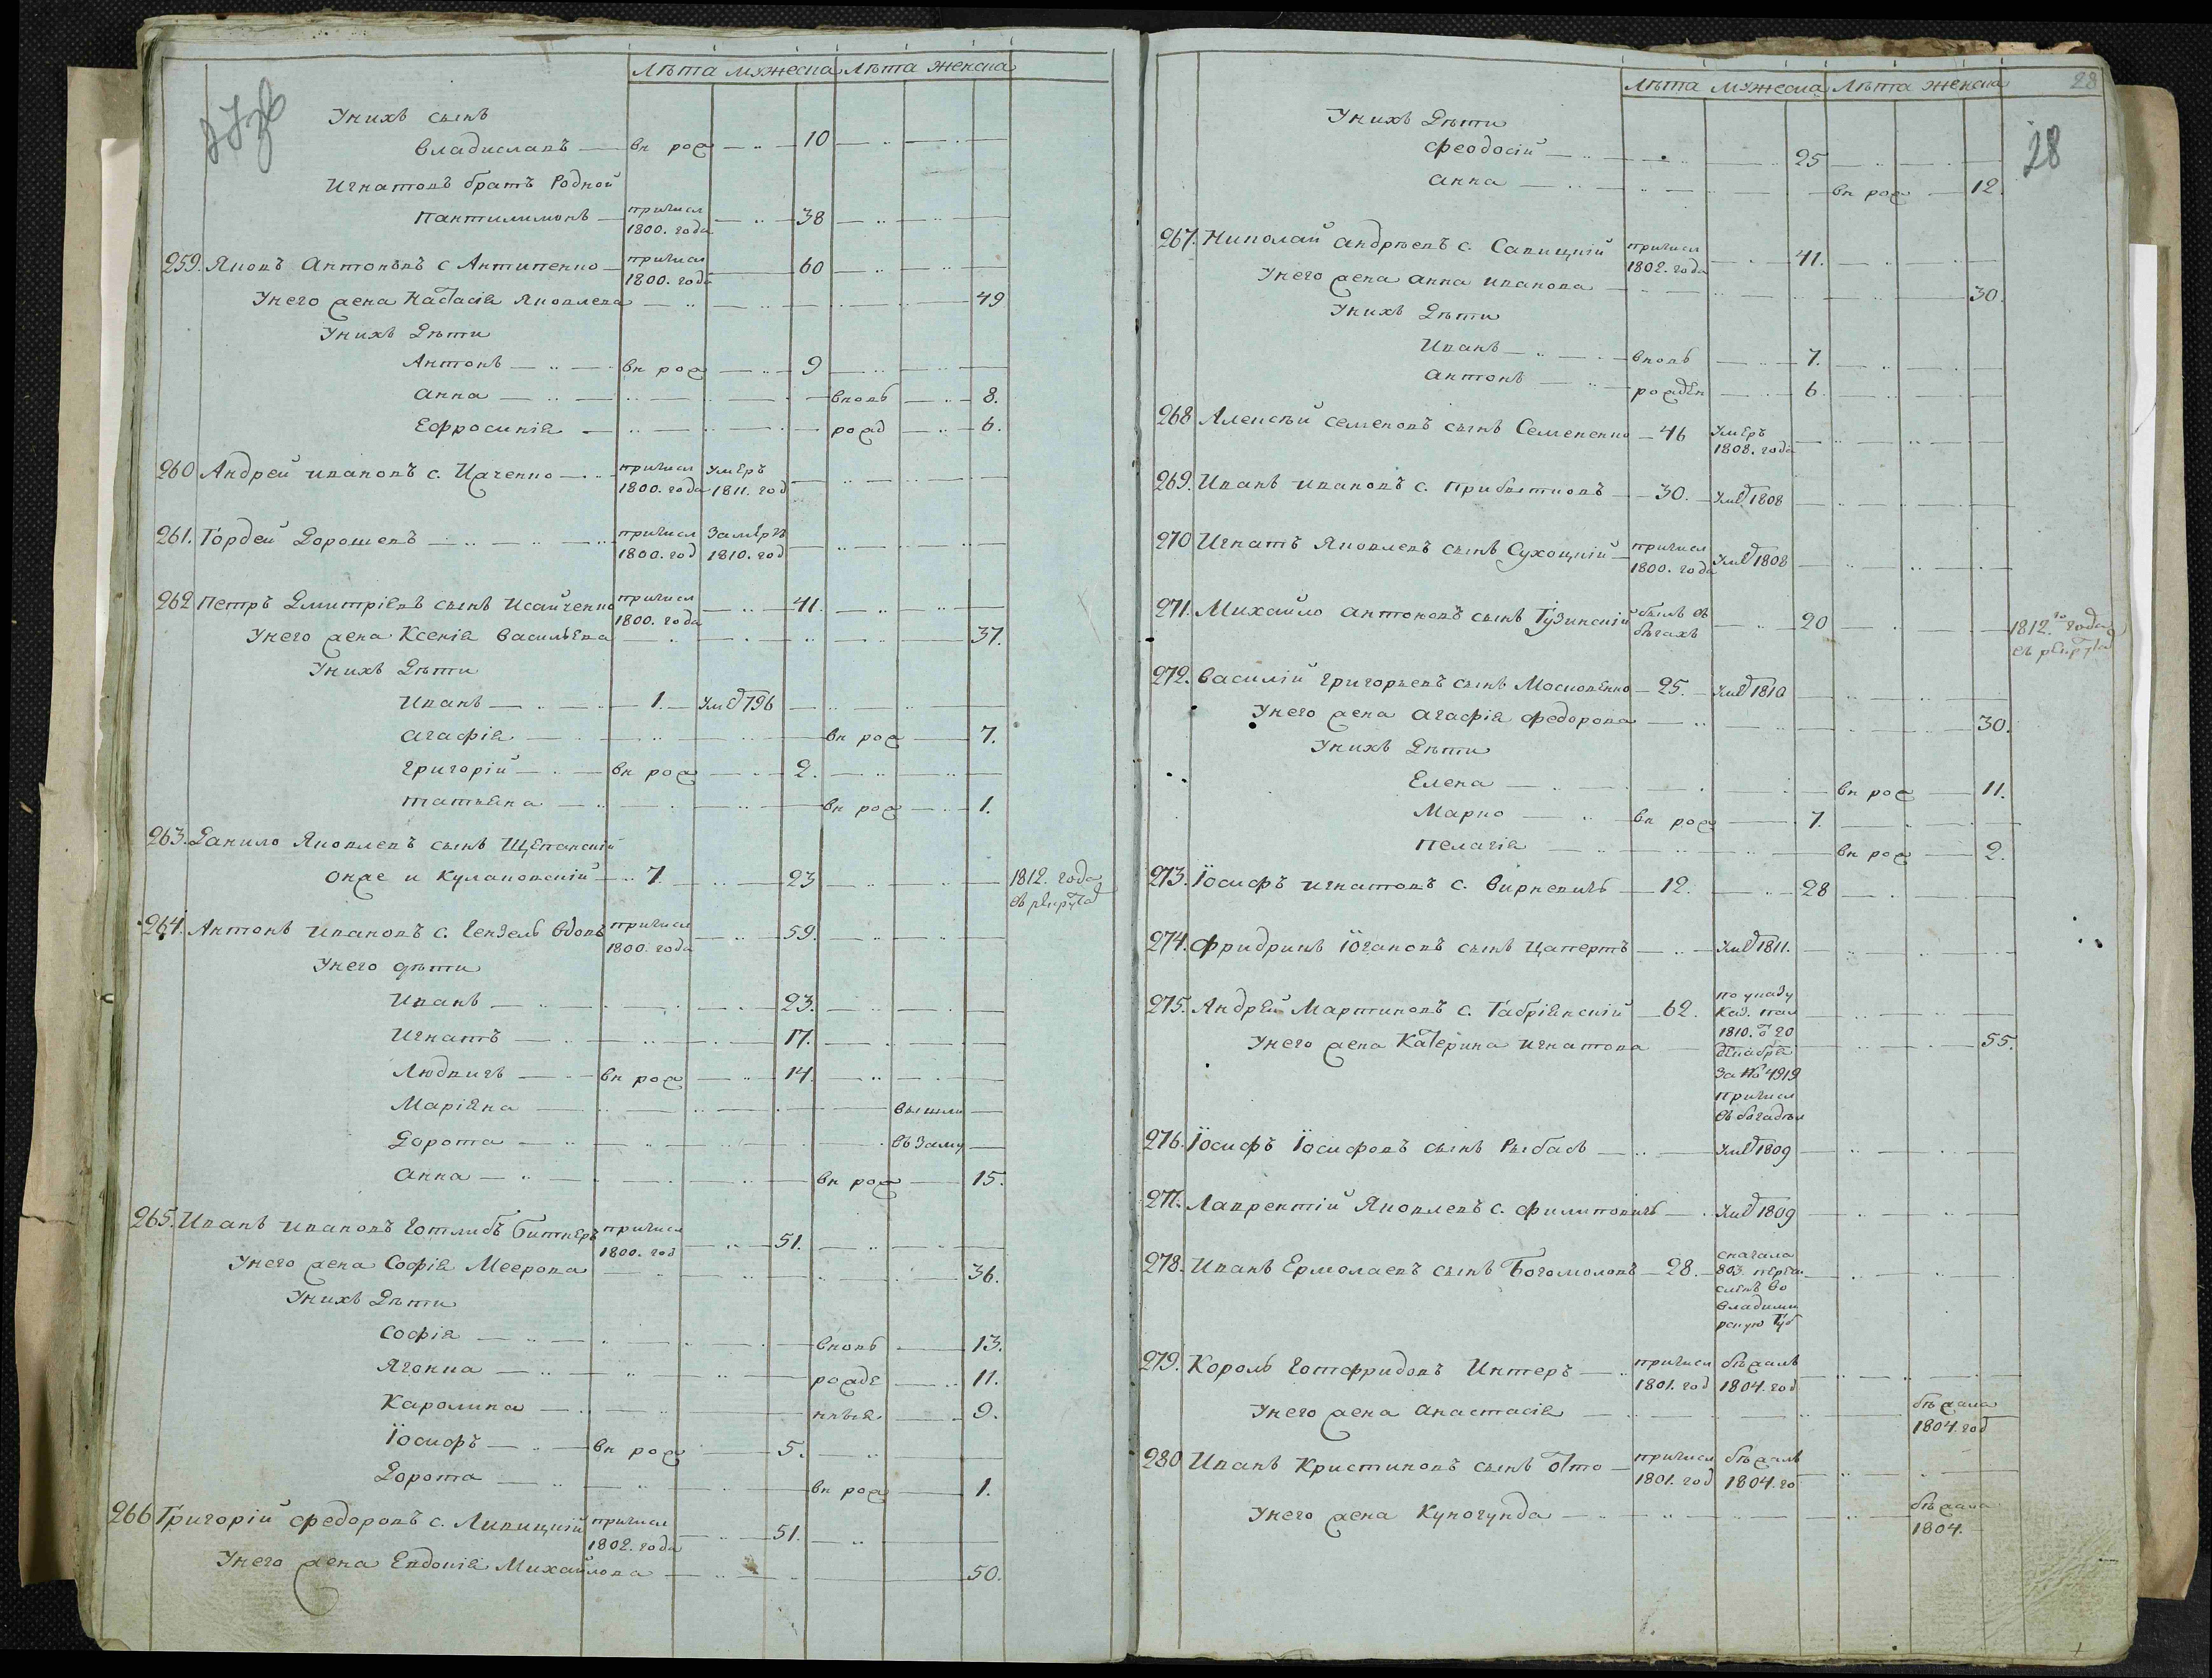 Лѣта мужеска Лѣта женска
У нихъ сынъ
Владиславъ вн рож 10
Игнатовъ братъ Родной
Пантилимонъ причисл 1800. года 38
259. Яковъ Антоновъ с Антипенко причисл 1800. года 60
У него жена Настасія Яковлева 49
У нихъ Дѣти
Антонъ вн рож 9
Анна вновь 8.
Ефросинія рожд 6.
260 Андрей Ивановъ с. Ицченко причисл 1800. года умеръ 1811. год
261. Гордей Дорошевъ причисл 1800. год Замеръ 1810. год
262 Петръ Дмитріевъ сынъ Исайченко причисл 1800. года 41.
У него жена Ксенія Васильева 37.
У нихъ Дѣти
Иванъ 1. Уме 796
Агафія вн рож 7.
Григорій вн рож 2.
Татьяна вн рож 1.
263. Данило Яковлевъ сынъ Щепанскій
онже и Кулаковскій 7. 23 1812. года
въ рекруты
264. Антонъ Ивановъ с. Гензель вдовъ причисл 1800. года 59.
У него дѣти
Иванъ 23.
Игнатъ 17.
Людвигъ вн рож 14.
Маріяна вышли
Дорота въ Заму
Анна вн рож 15.
265. Иванъ Ивановъ Готлибъ Битнеръ причисл 1800. год 51.
У него жена Софія Меерова 36.
У нихъ Дѣти
Софія вновь 13.
Ягонна рожде 11.
Каролина нныя 9.
Іосифъ вн рож 5.
Дорота вн рож 1.
266 Григорій Федоровъ с. Ливицкій причисл 1802. года 51.
У него жена Евдокія Михайлова 50.
Лѣта мужеска Лѣта женска 28
28
У нихъ Дѣти
Феодосій 25
Анна вн рож 12.
267. Николай Андрѣевъ с. Савицкій причисл 1802. года 41.
У него жена Анна Иванова 30.
У нихъ Дѣти
Иванъ вновь 7.
Антонъ рожден 6.
268 Алексѣй Семеновъ сынъ Семененко 46 умеръ 1808. года
269. Иванъ Ивановъ с. Прибытковъ 30. Уме 1808
270 Игнатъ Яковлевъ сынъ Сухоцкій причисл 1800. года Уме 1808
271. Михайло Антоновъ сынъ Гузинскій былъ въ бѣгахъ 20 1812.го года
въ рекруты
272. Василій Григорьевъ сынъ Московенко 25. Уме 1810
У него жена Агафія Федорова 30.
У нихъ Дѣти
Елена вн рож 11.
Марко вн рож 7.
Пелагія вн рож 2.
273. Іосифъ Игнатовъ с. Виркевичь 12. 28
274. Фридрихъ Іогановъ сынъ Цапертъ Уме 1811.
275. Андрей Мартиновъ с. Габріянскій 62. по указу
Каз. пал
1810. о 20
Декабря
За № 4919
причисл
въ богадѣл
У него жена Катерина Игнатова 55.
276. Іосифъ Іосифовъ сынъ Рыбасъ Уме 1809
277. Лаврентій Яковлевъ с. Филиповичь Уме 1809
278. Иванъ Ермолаевъ сынъ Богомоловъ 28. сначала
803. перечи
сленъ во
Владими
рскую Губ
279. Король Готфридовъ Интеръ причисл 1801. год бѣжалъ 1804. год
У него жена Анастасія бѣжала 1804. год
280 Иванъ Кристиновъ сынъ Отто причисл 1801. год бѣжалъ 1804. го
У него жена Куногунда бѣжала 1804.